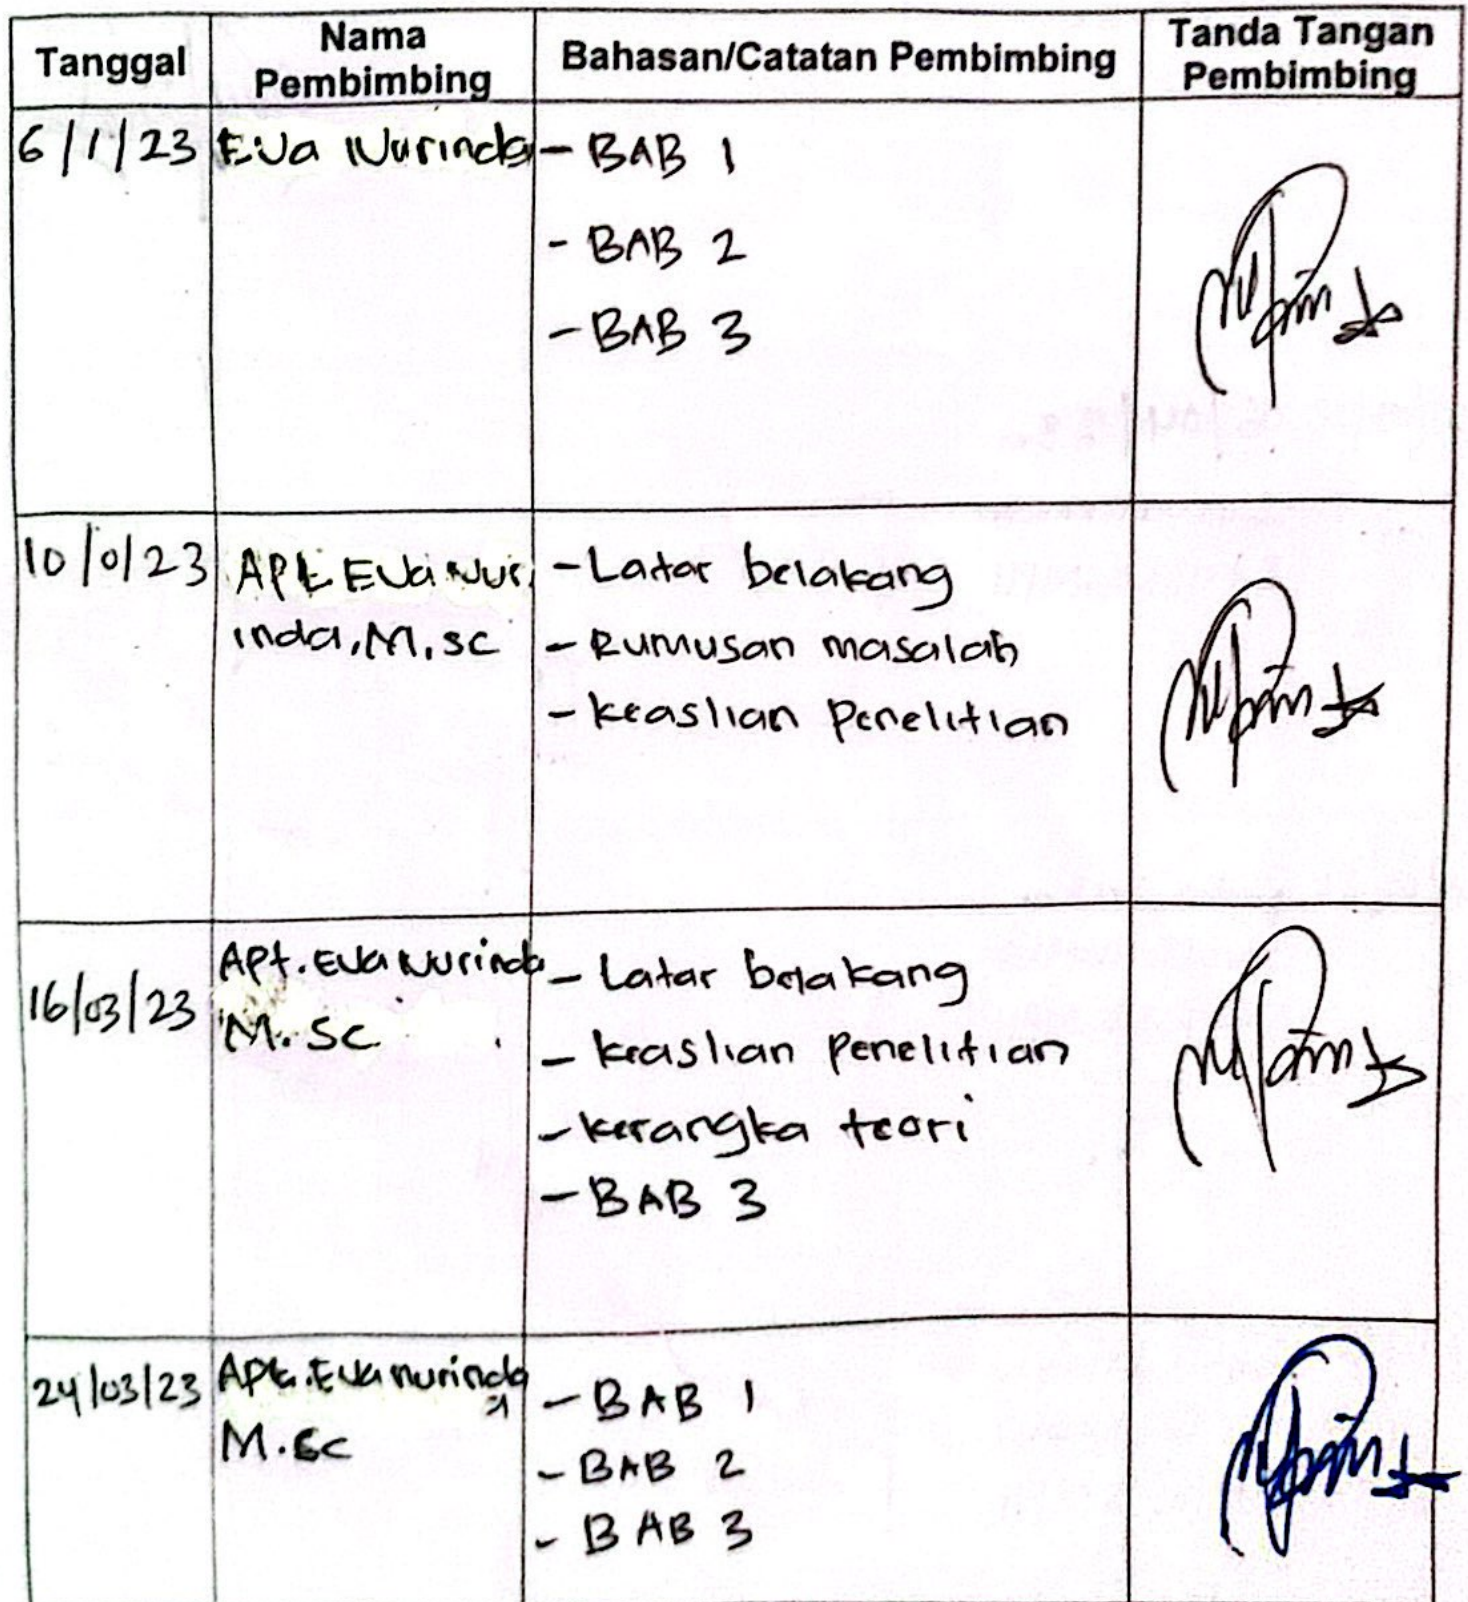 Tanggal Nama Pembimbing Bahasan/Catatan Pembimbing Tanda Tangan Pembimbing
6/1/23 Eva Nurinda - BAB 1
- BAB 2
- BAB 3
10/0/23 Apt Eva Nur, - Latar belakang
inda, M, sc - Rumusan masalah
- keaslian penelitian
16/03/23 Apt. Eva Nurinda - Latar belakang
M. Sc - keaslian penelitian
- kerangka teori
- BAB 3
24/03/23 Apt. Eva nurinda - BAB 1
M.Sc - BAB 2
- BAB 3